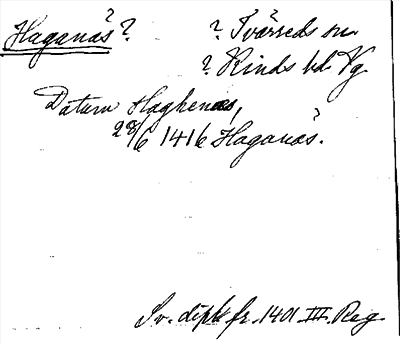 Haganäs? ? Tvärreds sn.
? Kinds hd Vg.
Datum Haghenæs,
28/6 1416 Haganäs.
Sv. dipl. fr. 1401 III. Reg.